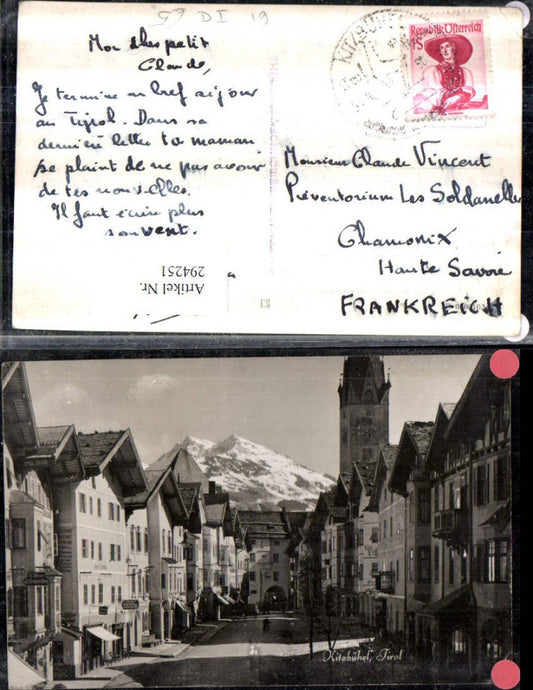 Mon cher petit
Claude,
Je termine un bref séjour
au Tyrol. Dans sa
dernière lettre ta maman
se plaint de ne pas avoir
de tes nouvelles.
Il faut écrire plus
souvent.
Artikel Nr.
294251
Republik Österreich
1S
KITZBÜHEL
Monsieur Claude Vincent
Préventorium Les Soldanelles
Chamonix
Haute Savoie
FRANKREICH
Kitzbühel, Tirol